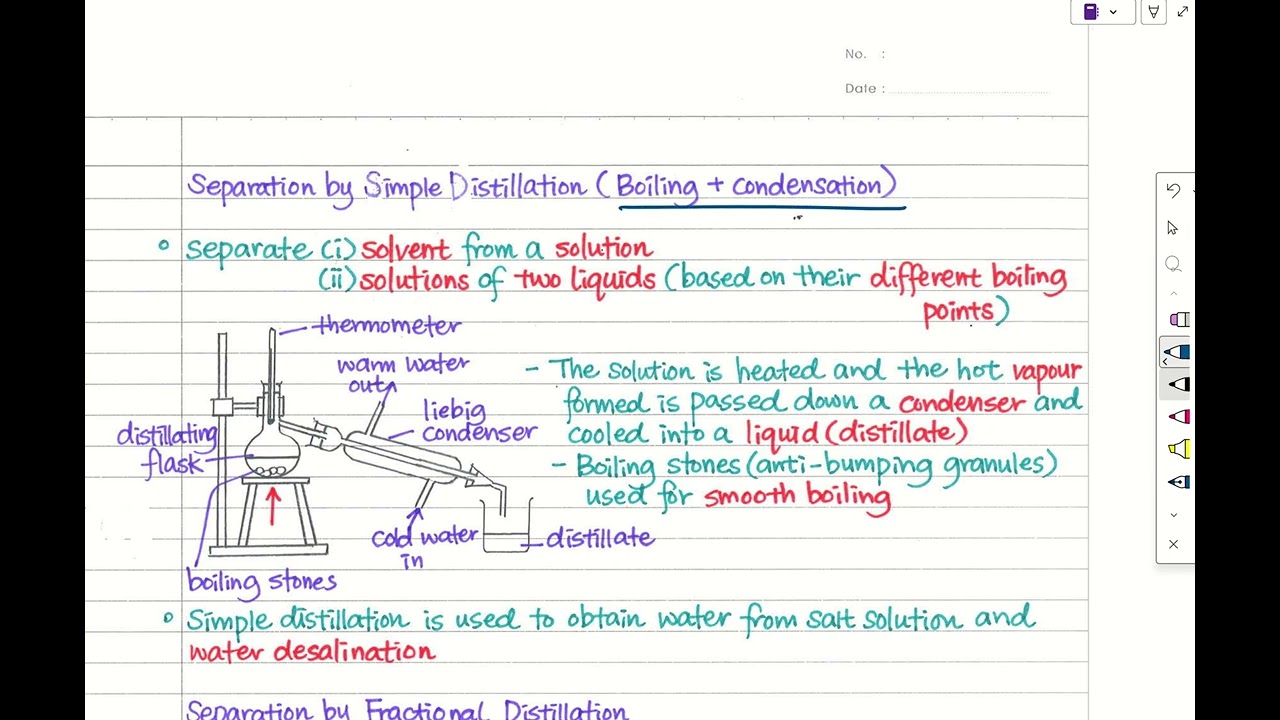 No. :
Date :
Separation by Simple Distillation (Boiling + condensation)
separate (i) solvent from a solution
(ii) solutions of two liquids (based on their different boiling
points)
thermometer
warm water
out
liebig
condenser
distillating
flask
cold water
in
distillate
boiling stones
- The solution is heated and the hot vapour
formed is passed down a condenser and
cooled into a liquid (distillate)
- Boiling stones (anti-bumping granules)
used for smooth boiling
Simple distillation is used to obtain water from salt solution and
water desalination
Separation by Fractional Distillation